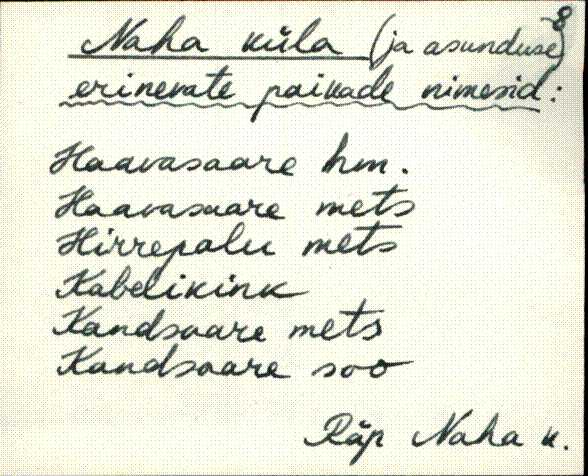 8
Naha küla (ja asunduse)
erinevate paikade nimesid:
Haavasaare hm.
Haavasaare mets
Hirrepalu mets
Kabelikink
Kandsaare mets
Kandsaare soo
Räp Naha k.